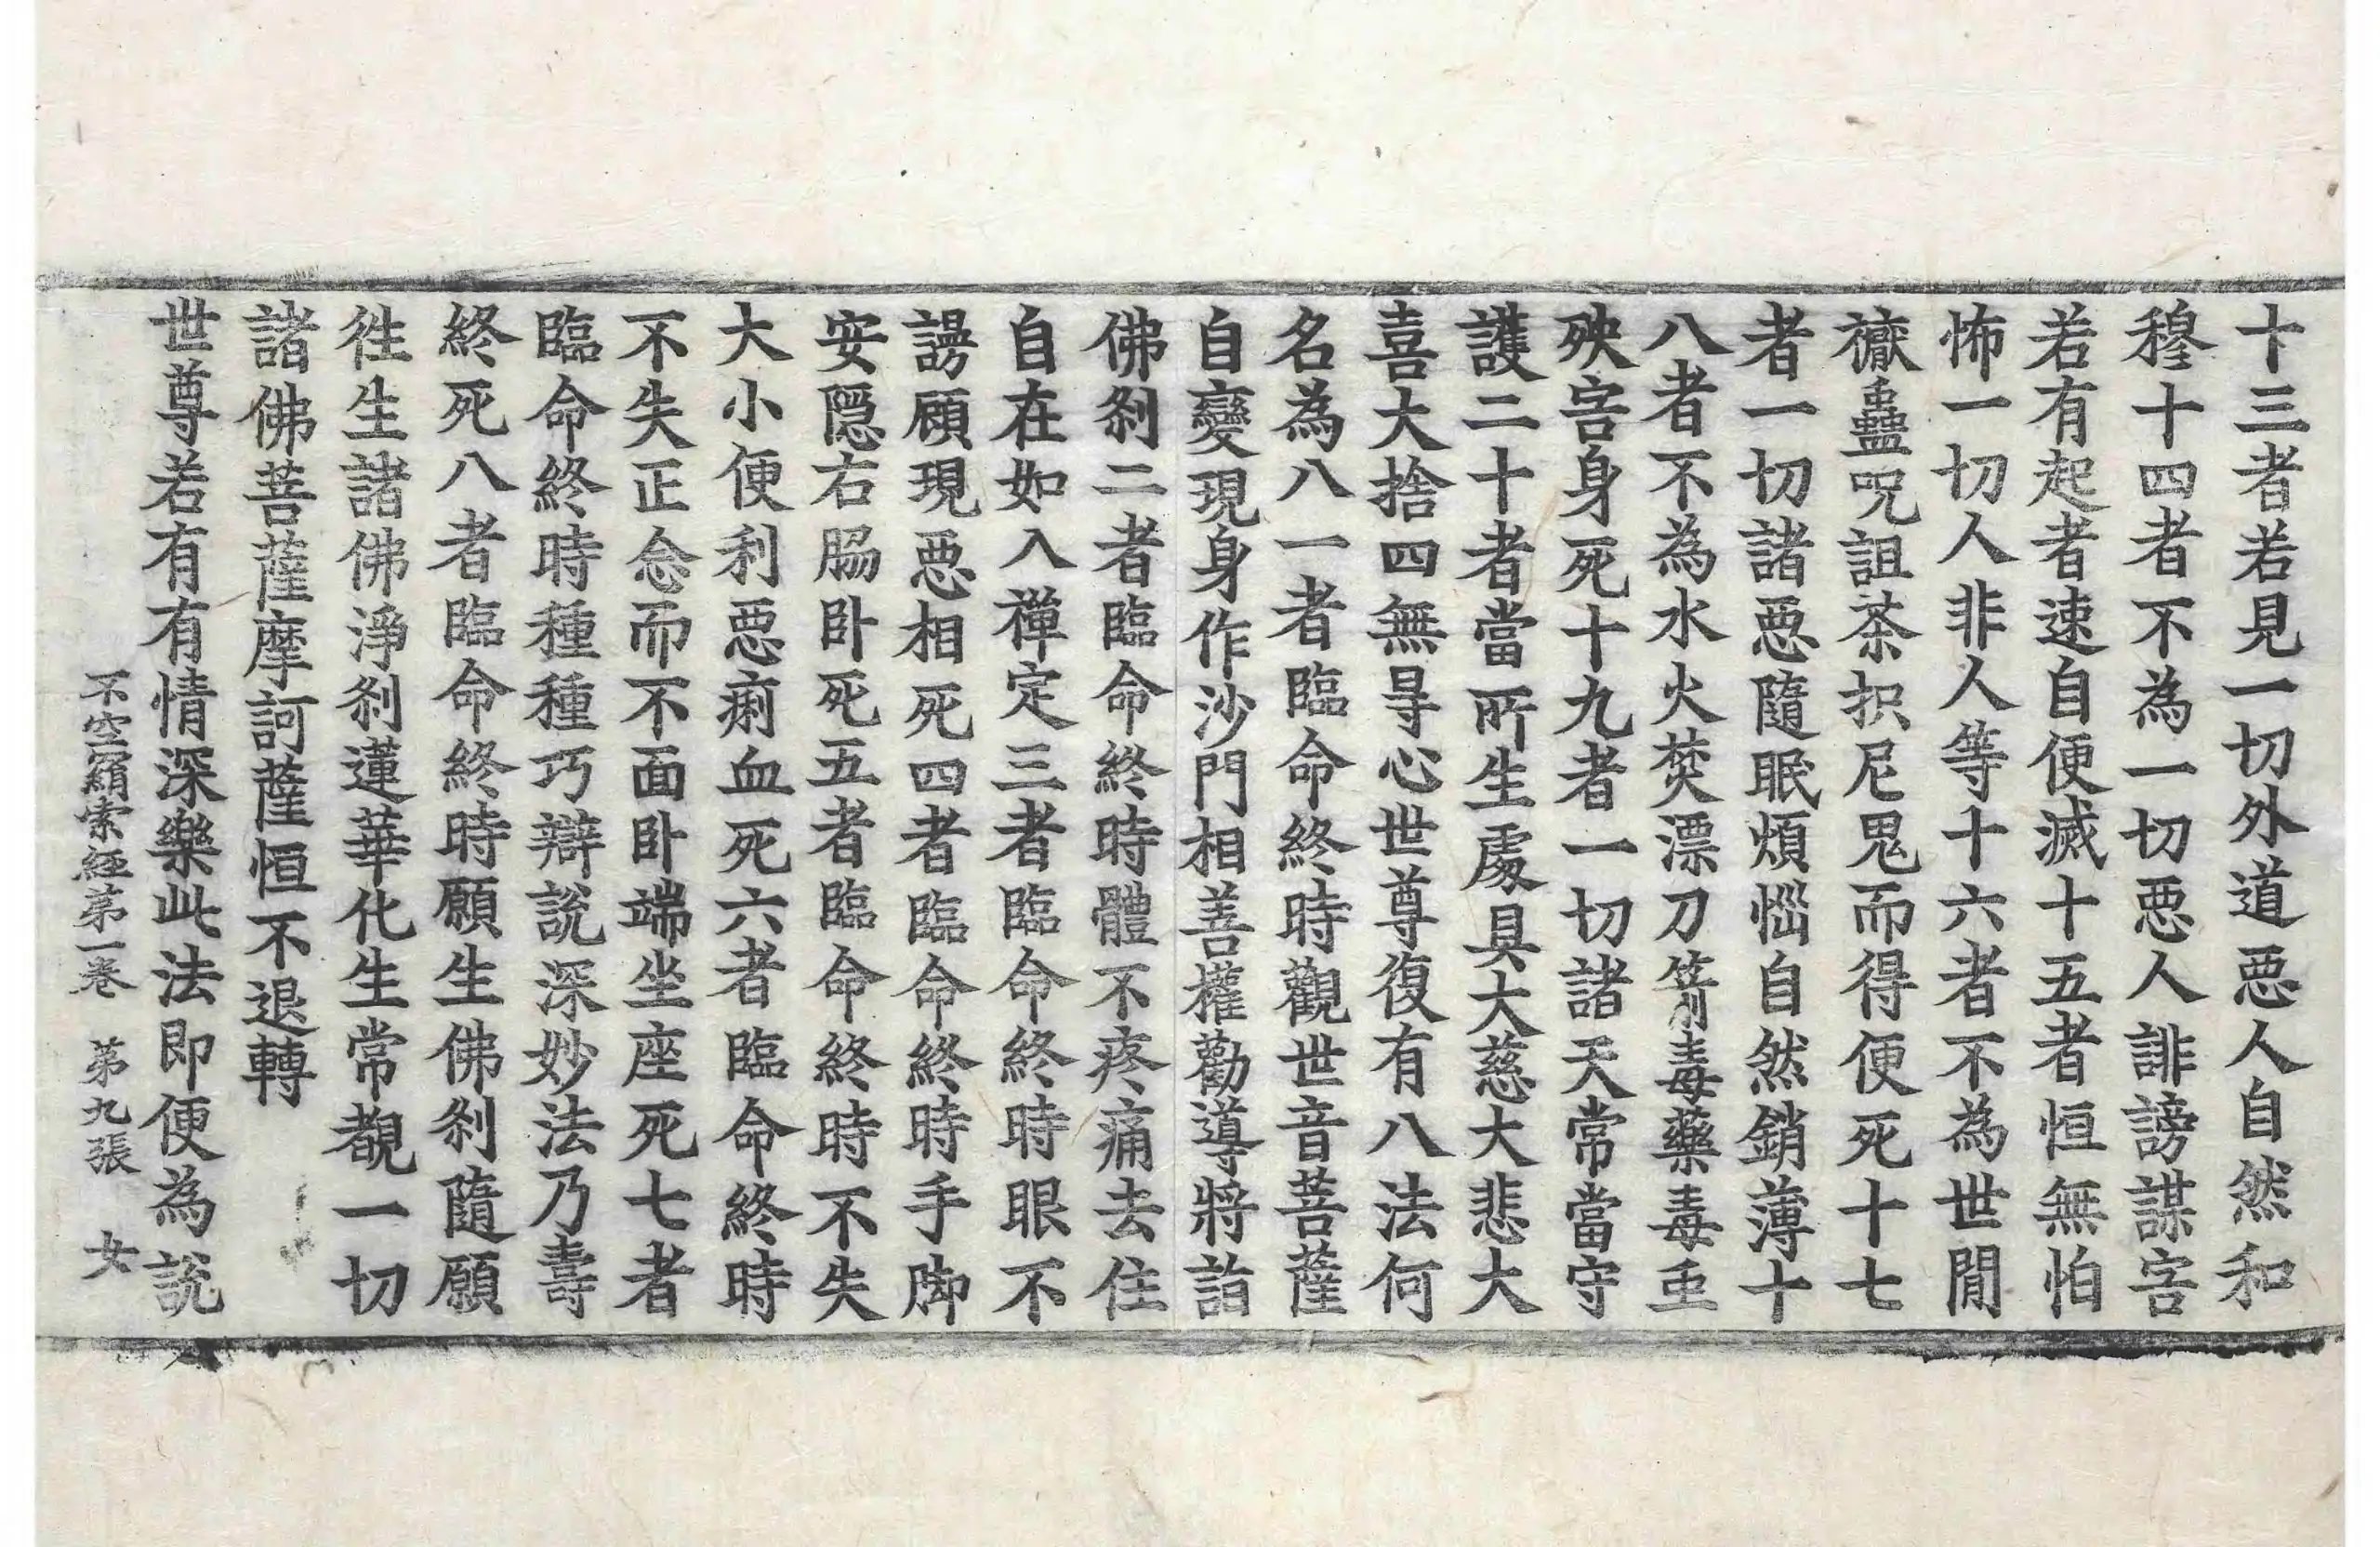 十三者若見一切外道惡人自然和
穆十四者不為一切惡人誹謗謀害
若有起者速自便滅十五者恒無怕
怖一切人非人等十六者不為世閒
禳蠱呪詛荼枳尼鬼而得便死十七
者一切諸惡隨眠煩惱自然銷薄十
八者不為水火焚漂刀箭毒藥毒虫
殃害身死十九者一切諸天常當守
護二十者當所生處具大慈大悲大
喜大捨四無㝵心世尊復有八法何
名為八一者臨命終時觀世音菩薩
自變現身作沙門相善權勸導將詣
佛剎二者臨命終時體不疼痛去住
自在如入禪定三者臨命終時眼不
謾顧現惡相死四者臨命終時手脚
安隱右脇卧死五者臨命終時不失
大小便利惡痢血死六者臨命終時
不失正念而不面卧端坐座死七者
臨命終時種種巧辯說深妙法乃壽
終死八者臨命終時願生佛剎隨願
徃生諸佛淨剎蓮華化生常覩一切
諸佛菩薩摩訶薩恒不退轉
世尊若有有情深樂此法即便為說
不空羂索經第一卷　第九張　女